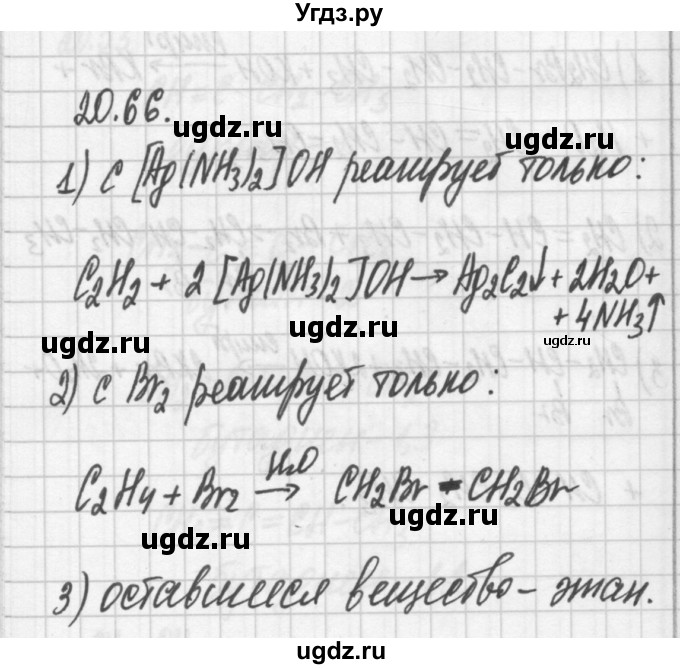 Угдз.ру
20.66.
ugdz.ru
1) с [Ag(NH3)2]OH реагирует только:
ugdz.ru
ugdz.ru
C2H2 + 2 [Ag(NH3)2]OH → Ag2C2↓ + 2H2O +
+ 4NH3↑
ugdz.ru
ugdz.ru
ugdz.ru
2) с Br2 реагирует только:
ugdz.ru
C2H4 + Br2 H2O → CH2Br - CH2Br
ugdz.ru
ugdz.ru
3) оставшееся вещество - этан.
ugdz.ru
ugdz.ru